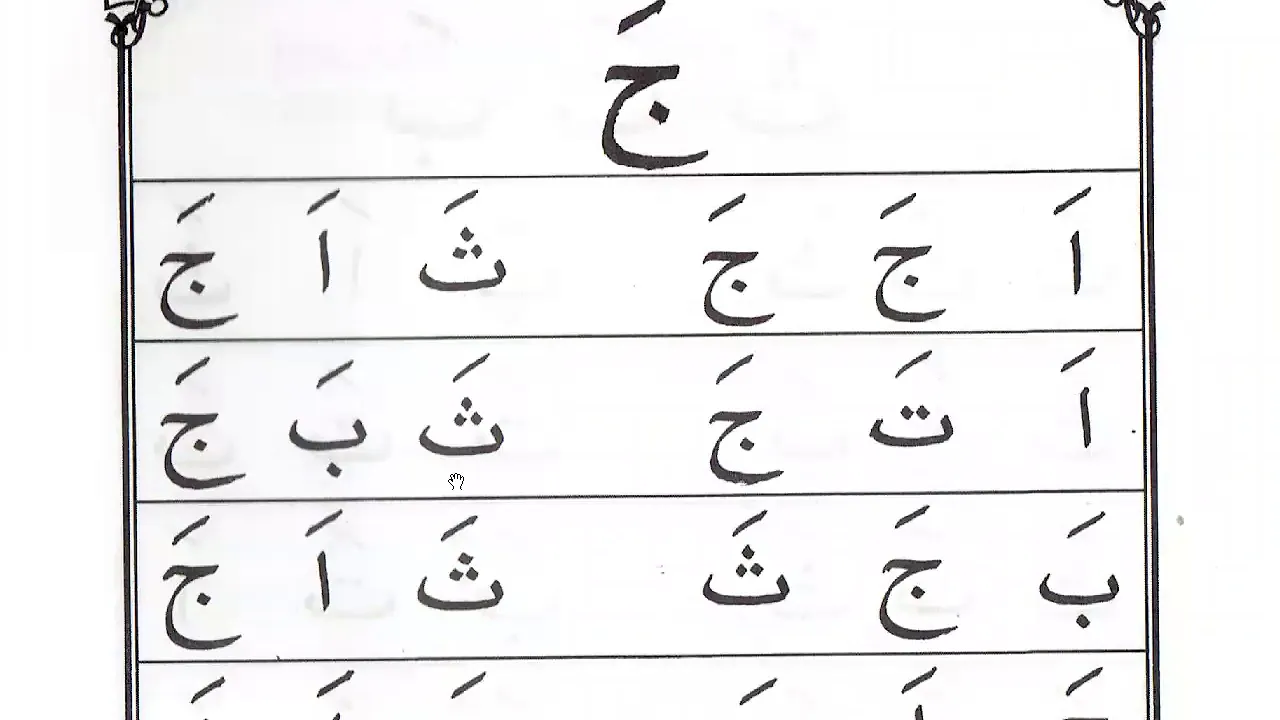 جَ
اَ جَ جَ ثَ اَ جَ
اَ تَ جَ ثَ بَ جَ
بَ جَ ثَ ثَ اَ جَ